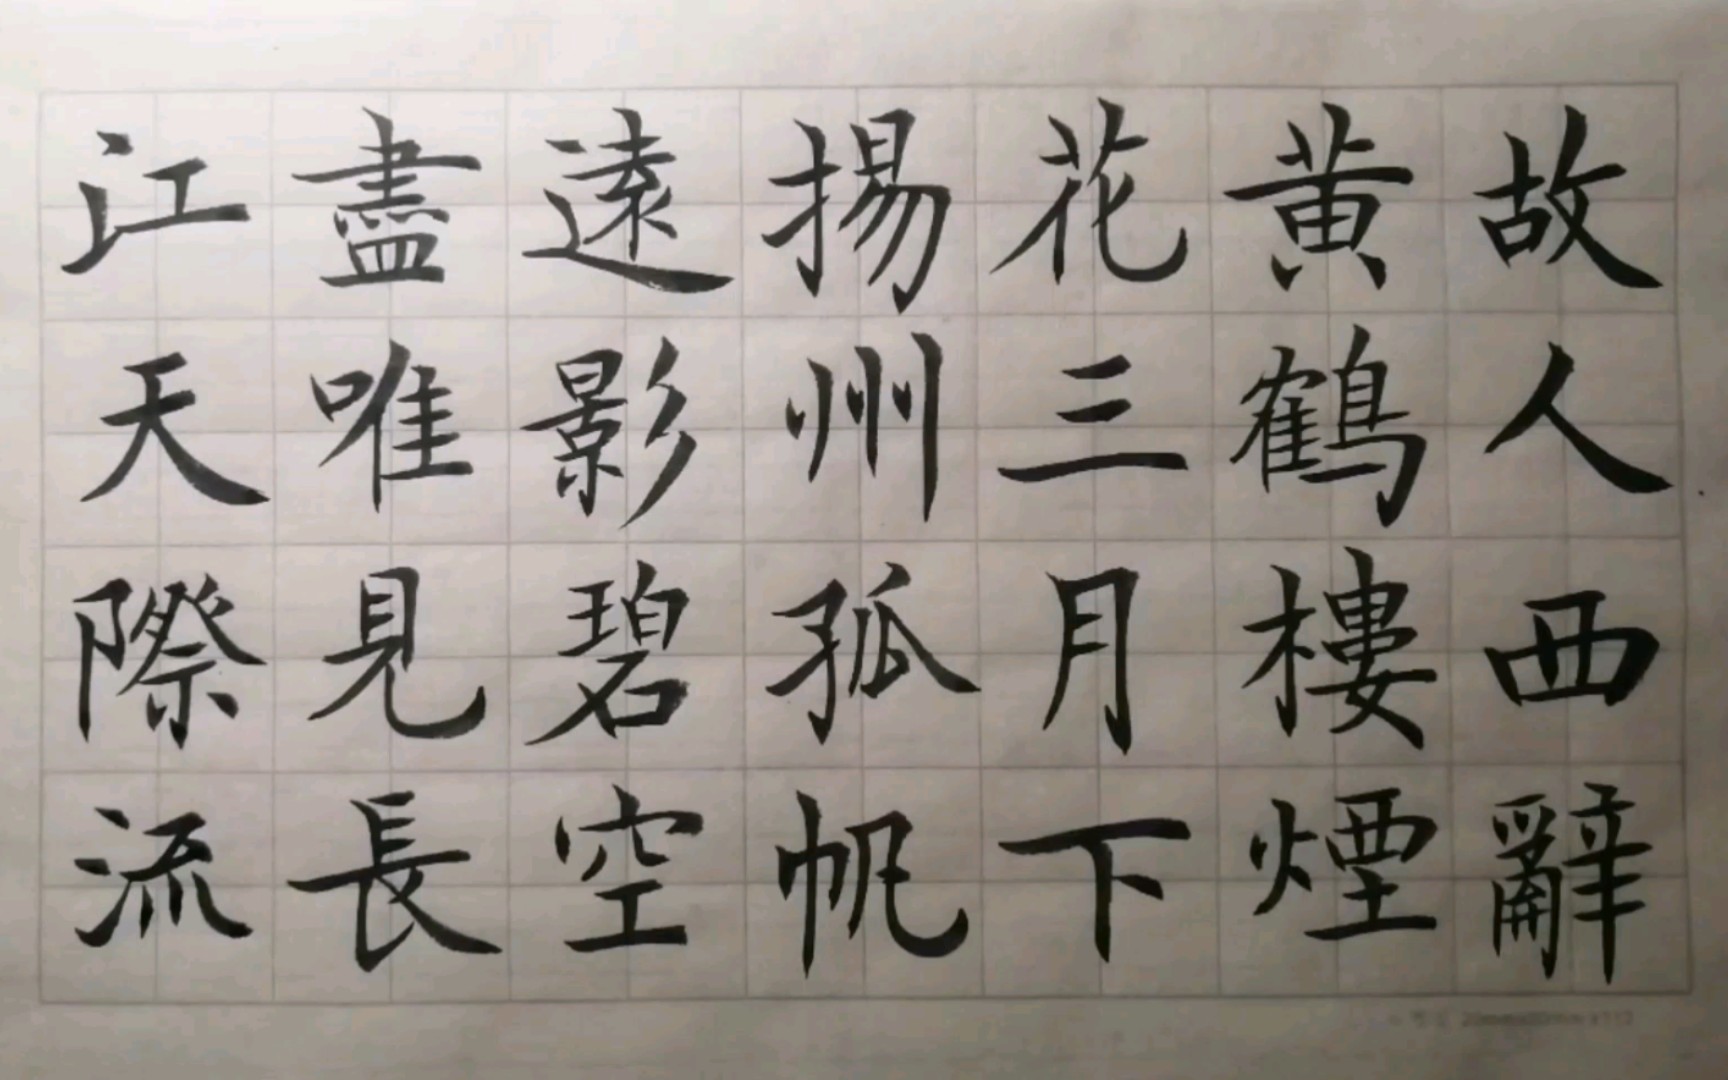 故人西辭
黄鶴樓煙
花三月下
揚州孤帆
遠影碧空
盡唯見長
江天際流